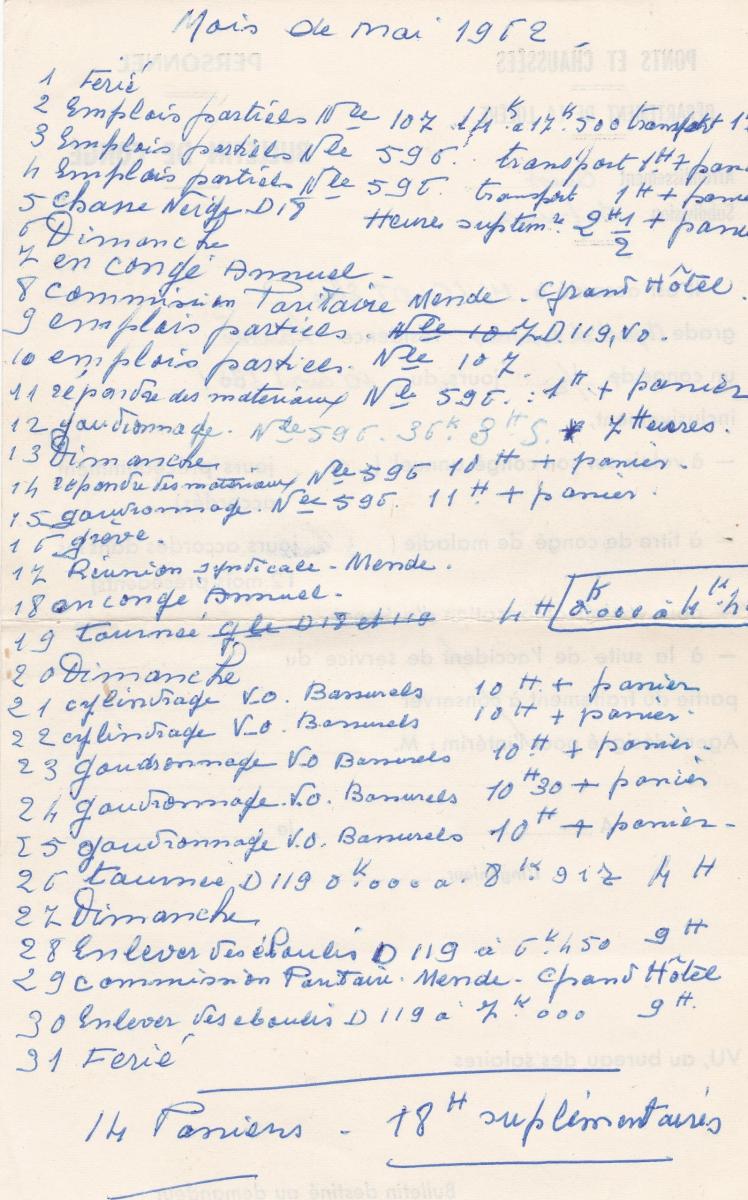 Mois de mai 1962
1 Ferié
2 Emplois partiels Nle 107 à 17K.500 transport
3 Emplois partiels Nle 596. transport 1H
4 Emplois partiels Nle 596. transport 1H + panier
5 Chasse Neige D18 Heures suplem. 2H 1/2 + panier
6 Dimanche
7 en congé Annuel -
8 commission Paritaire Mende - Grand Hôtel.
9 emplois partiels Nle 107 D119, V.O.
10 emplois partiels. Nle 107.
11 répandre des materiaux Nle 596. : 1H + panier
12 goudronnage. Nle 596. 36K. 7 Heures.
13 Dimanche
14 répandre des materiaux Nle 596 10H + panier.
15 goudronnage. Nle 596. 11H + panier.
16 grève.
17 Réunion syndicale - Mende.
18 en congé Annuel.
19 tournée D18 et 119 4H
20 Dimanche
21 cylindrage V.O. Bassurels 10H + panier
22 cylindrage V.O. Bassurels 10H + panier.
23 goudronnage V.O Bassurels 10H + panier.
24 goudronnage V.O. Bassurels 10H30 + panier
25 goudronnage V.O. Bassurels 10H + panier -
26 tournée D119 0K.000 a 8K917 4H
27 Dimanche
28 Enlever des éboulis D119 à 6K.450 9H
29 commission Paritaire. Mende - Grand Hôtel
30 Enlever des eboulis D119 à 7K.000 9H.
31 Ferié
14 Paniers - 18H suplémentaires